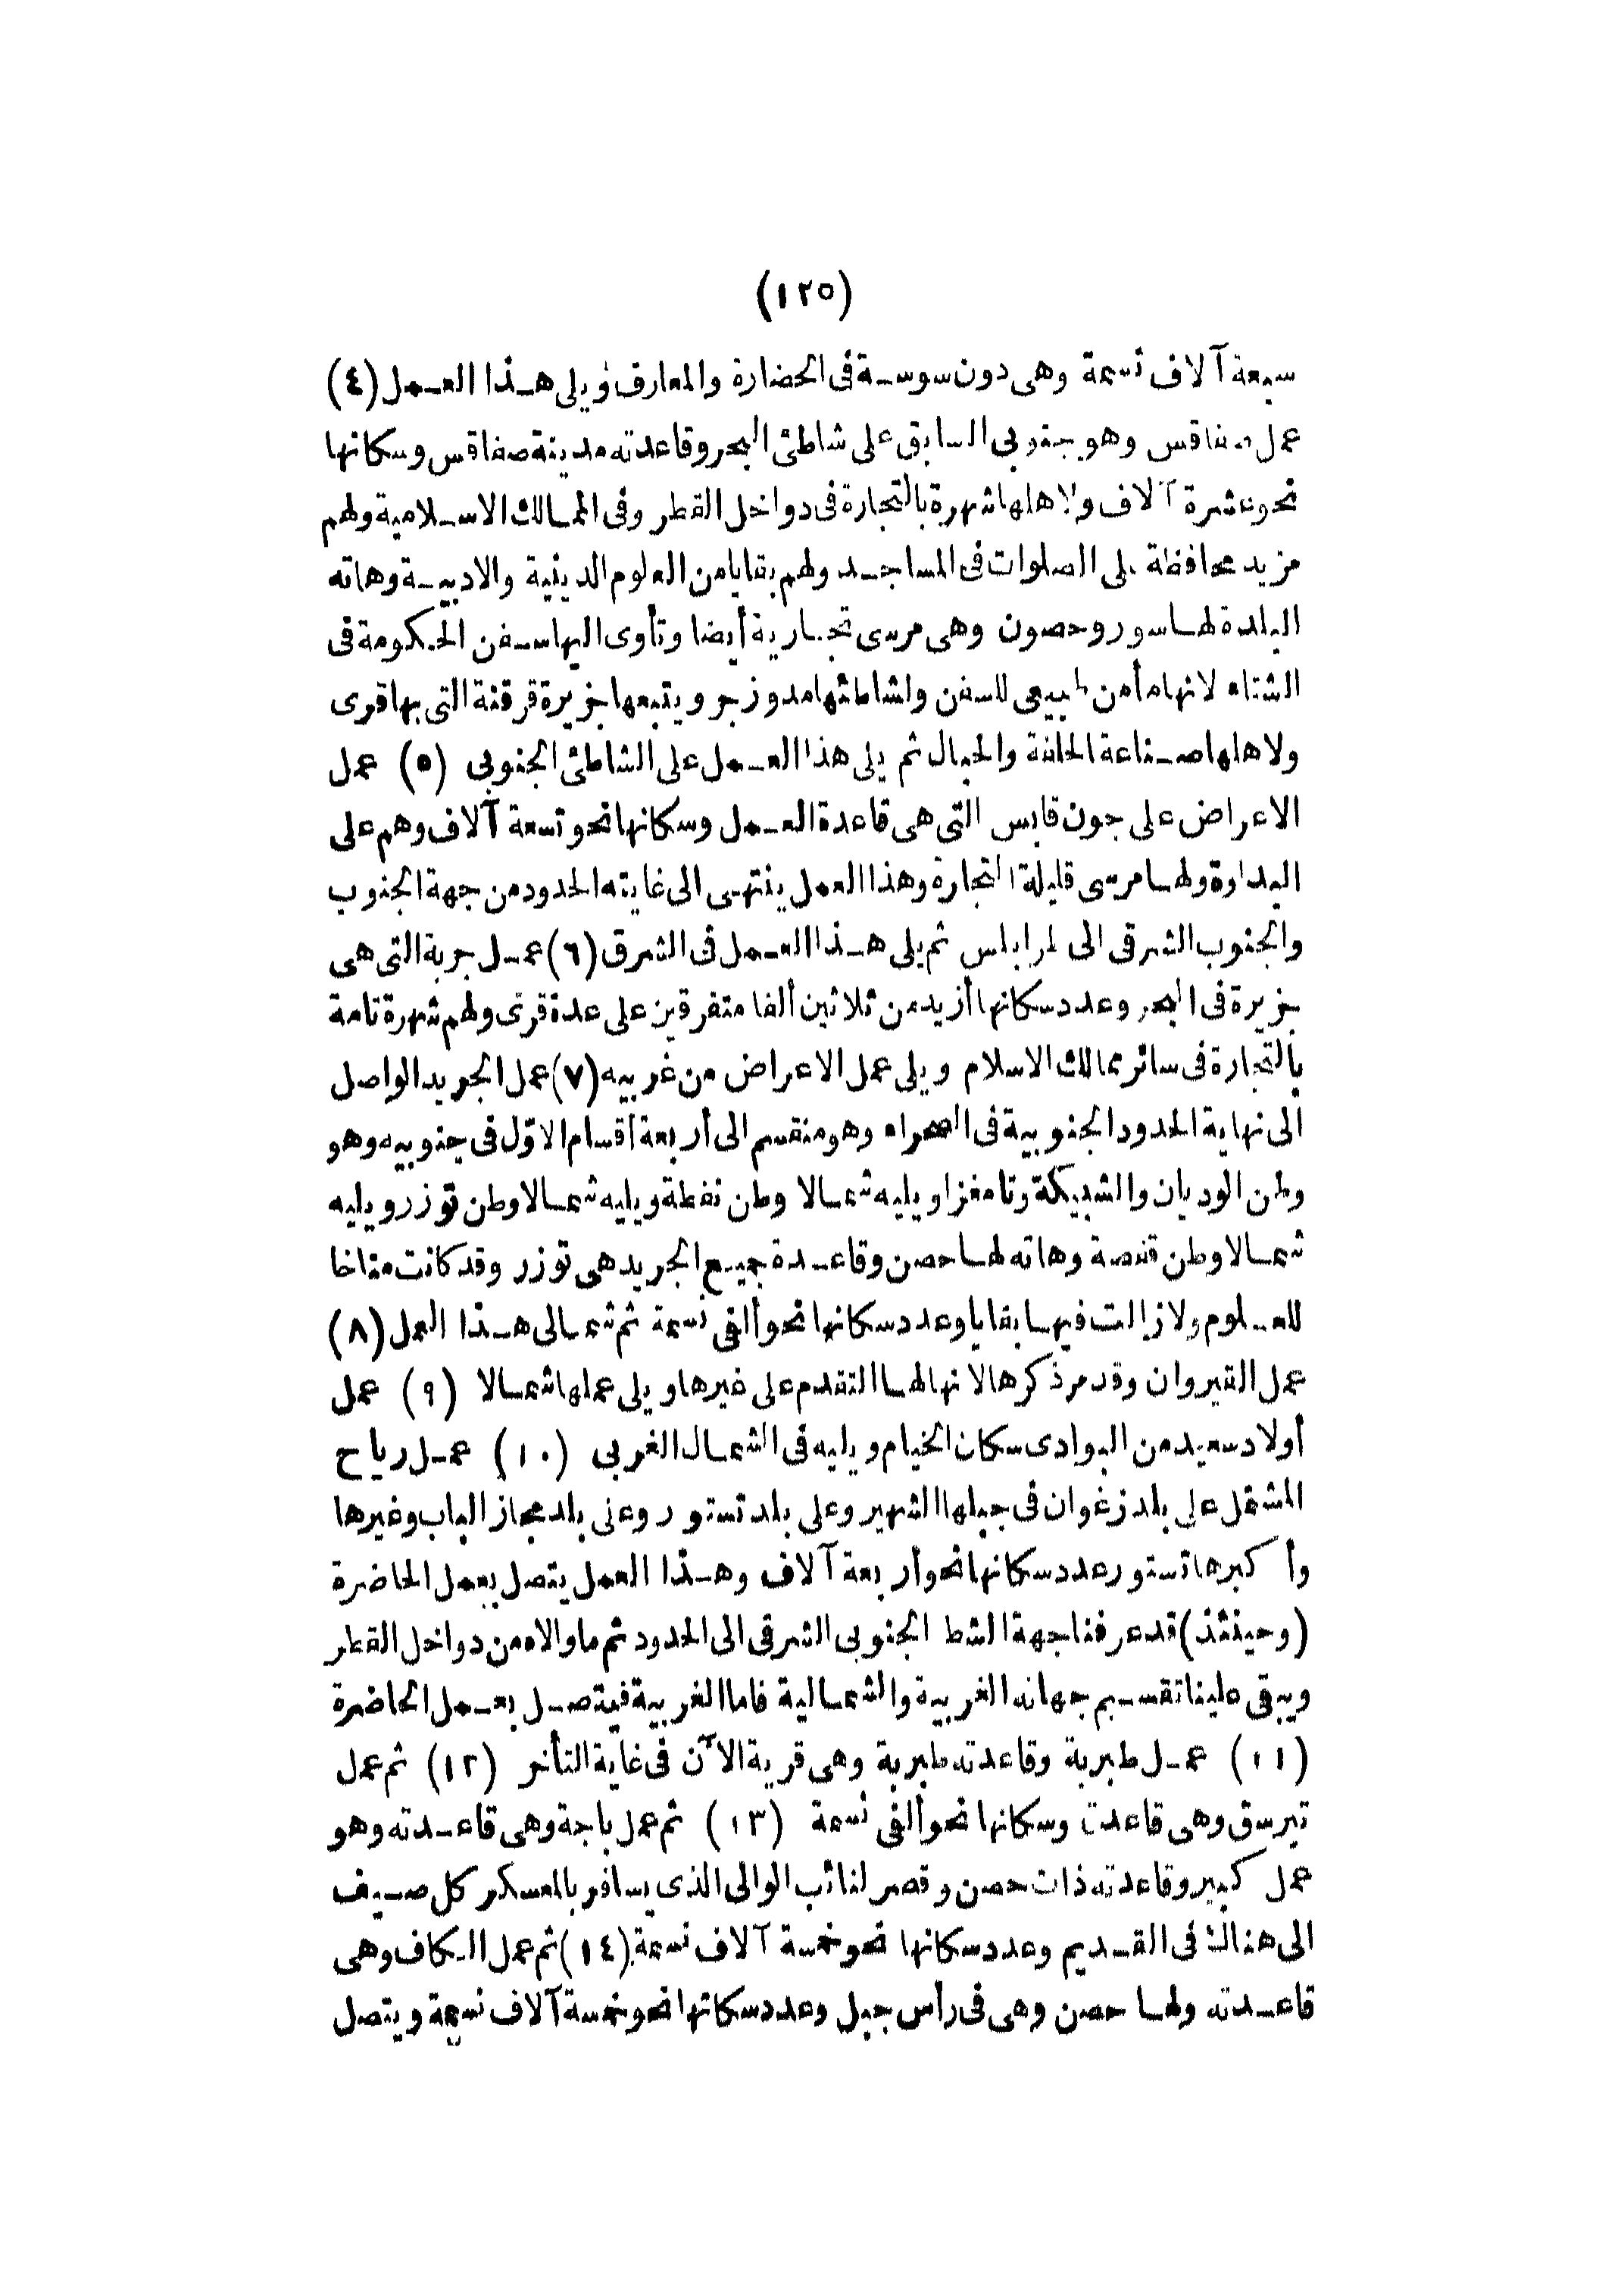 (١٢٥)
سبعة آلاف نسمة وهى دون سوسة فى الحضارة والمعارف ويلى هذا العمل (٤)
عمل صفاقس وهو جنوبى السابق على شاطئ البحر وقاعدته مدينة صفاقس وسكانها
نحو عشرة آلاف ولاهلها شهرة بالتجارة فى دواخل القطر وفى الممالك الاسلامية ولهم
مزيد محافظة على الصلوات فى المساجد ولهم بقايا من العلوم الدينية والادبية وهاته
البلدة لها سور وحصون وهى مرسى تجارية أيضا وتأوى اليها سفن الحكومة فى
الشتاء لانها مأمن طبيعى للسفن ولشاطئها مد وزجر ويتبعها جزيرة قرقنة التى بها قرى
ولاهلها صناعة الحلفة والحبال ثم يلى هذا العمل على الشاطئ الجنوبى (٥) عمل
الاعراض على جون قابس التى هى قاعدة العمل وسكانها نحو تسعة آلاف وهم على
البداوة ولها مرسى قليلة التجارة وهذا العمل ينتهى الى غايته الحدود من جهة الجنوب
والجنوب الشرقى الى طرابلس ثم يلى هذا العمل فى الشرق (٦) عمل جربة التى هى
جزيرة فى البحر وعدد سكانها أزيد من ثلاثين ألفا متفرقين على عدة قرى ولهم شهرة تامة
بالتجارة فى سائر ممالك الاسلام ويلى عمل الاعراض من غربيه (٧) عمل الجريد الواصل
الى نهاية الحدود الجنوبية فى الصحراء وهو منقسم الى أربعة أقسام الاوّل فى جنوبيه وهو
وطن الوديان والشبيكة وتامغزا ويليه شمالا وطن نفطة ويليه شمالا وطن توزر ويليه
شمالا وطن قفصة وهاته لها حصن وقاعدة جميع الجريد هى توزر وقد كانت مناخا
للعلوم ولا زالت فيها بقايا وعدد سكانها نحو ألفى نسمة ثم شمالى هذا العمل (٨)
عمل القيروان وقد مر ذكرها لانها لها التقدم على غيرها ويلى عملها شمالا (٩) عمل
أولاد سعيد من البوادى سكان الخيام ويليه فى الشمال الغربى (١٠) عمل رياح
المشتمل على بلد زغوان فى جبلها الشهير وعلى بلد تستور وعلى بلد مجاز الباب وغيرها
وأكبرها تستور عدد سكانها نحو أربعة آلاف وهذا العمل يتصل بعمل الحاضرة
(وحينئذ) قد عرفنا جهة الشط الجنوبى الشرقى الى الحدود ثم ما والاه من دواخل القطر
ويبقى علينا تقسيم جهاته الغربية والشمالية فاما الغربية فيتصل بعمل الحاضرة
(١١) عمل طبربة وقاعدته طبربة وهى قرية الآن فى غاية التأخر (١٢) ثم عمل
تبرسق وهى قاعدته وسكانها نحو ألفى نسمة (١٣) ثم عمل باجة وهى قاعدته وهو
عمل كبير وقاعدته ذات حصن وقصر لنائب الوالى الذى يسافر بالعسكر كل صيف
الى هنالك فى القديم وعدد سكانها نحو خمسة آلاف نسمة (١٤) ثم عمل الكاف وهى
قاعدته ولها حصن وهى فى رأس جبل وعدد سكانها نحو خمسة آلاف نسمة ويتصل